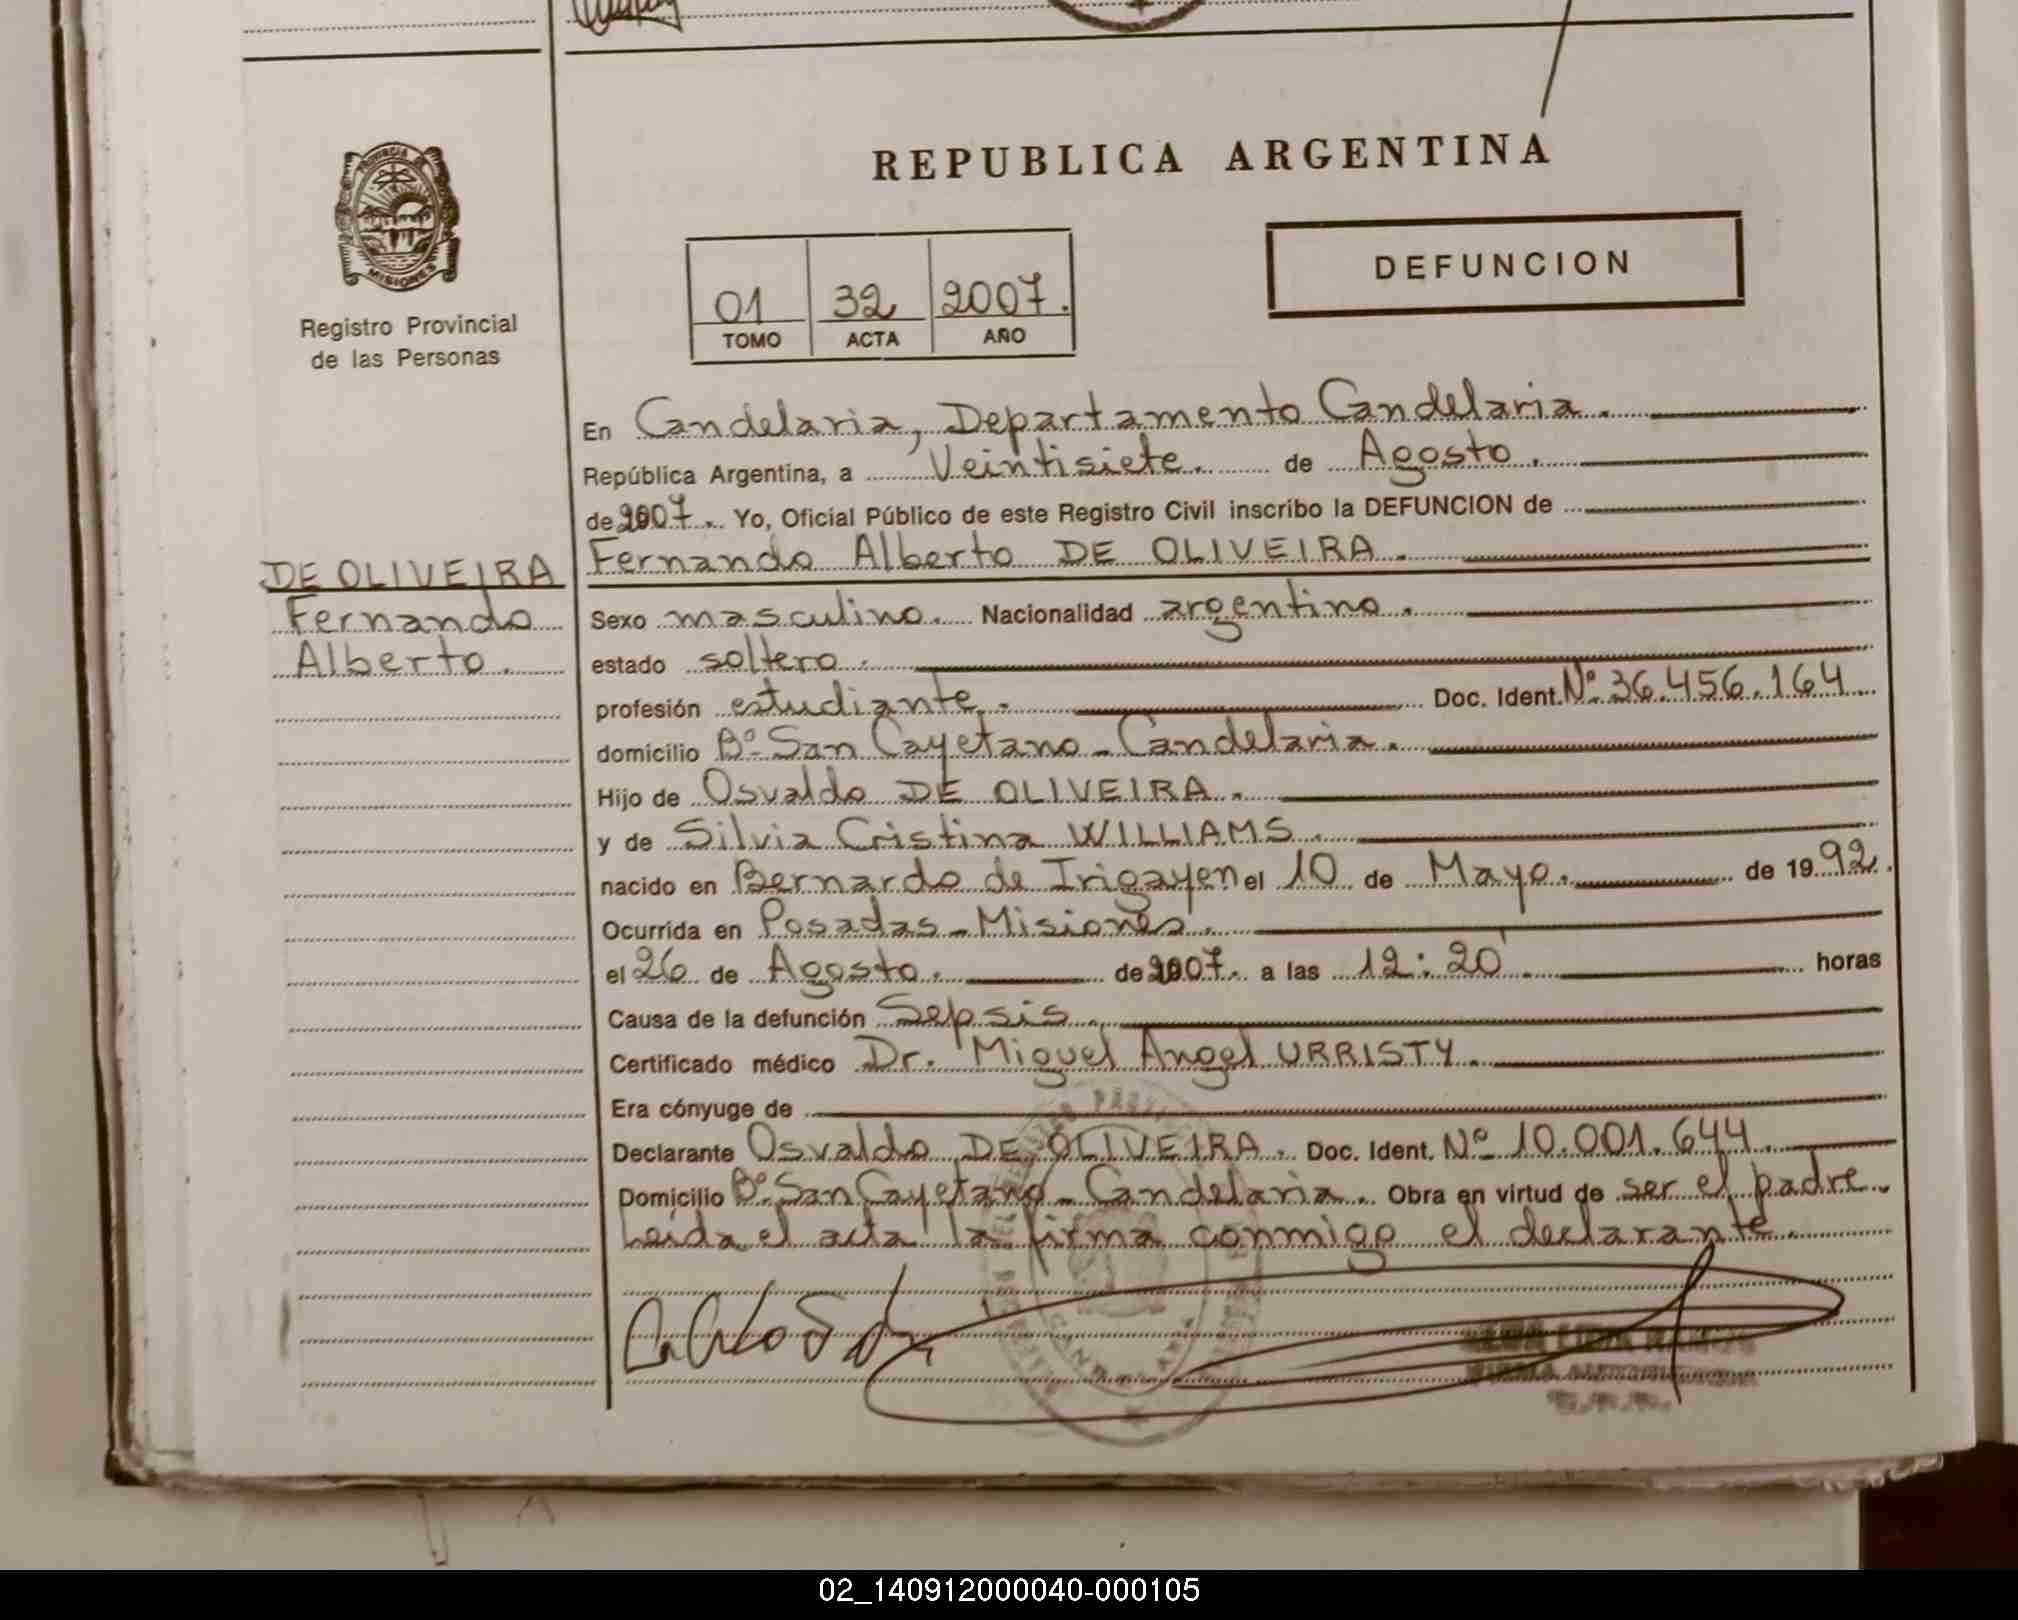 PROVINCIA DE
MISIONES
Registro Provincial
de las Personas
REPUBLICA ARGENTINA
DEFUNCION
01 32 2007.
TOMO ACTA AÑO
En Candelaria, Departamento Candelaria.
República Argentina, a Veintisiete. de Agosto.
de 2007. Yo, Oficial Público de este Registro Civil inscribo la DEFUNCION de
DE OLIVEIRA
Fernando
Alberto.
Fernando Alberto DE OLIVEIRA.
Sexo masculino. Nacionalidad argentino.
estado soltero.
profesión estudiante. Doc. Ident. Nº 36.456.164
domicilio Bº San Cayetano - Candelaria.
Hijo de Osvaldo DE OLIVEIRA.
y de Silvia Cristina WILLIAMS.
nacido en Bernardo de Irigayen el 10 de Mayo. de 1992.
Ocurrida en Posadas - Misiones.
el 26 de Agosto. de 2007. a las 12:20'. horas
Causa de la defunción Sepsis.
Certificado médico Dr. Miguel Angel URRISTY.
Era cónyuge de
Declarante Osvaldo DE OLIVEIRA. Doc. Ident. Nº 10.001.644.
Domicilio Bº San Cayetano - Candelaria. Obra en virtud de ser el padre.
Leída el acta la firma conmigo el declarante.
CANDELARIA
02_140912000040-000105